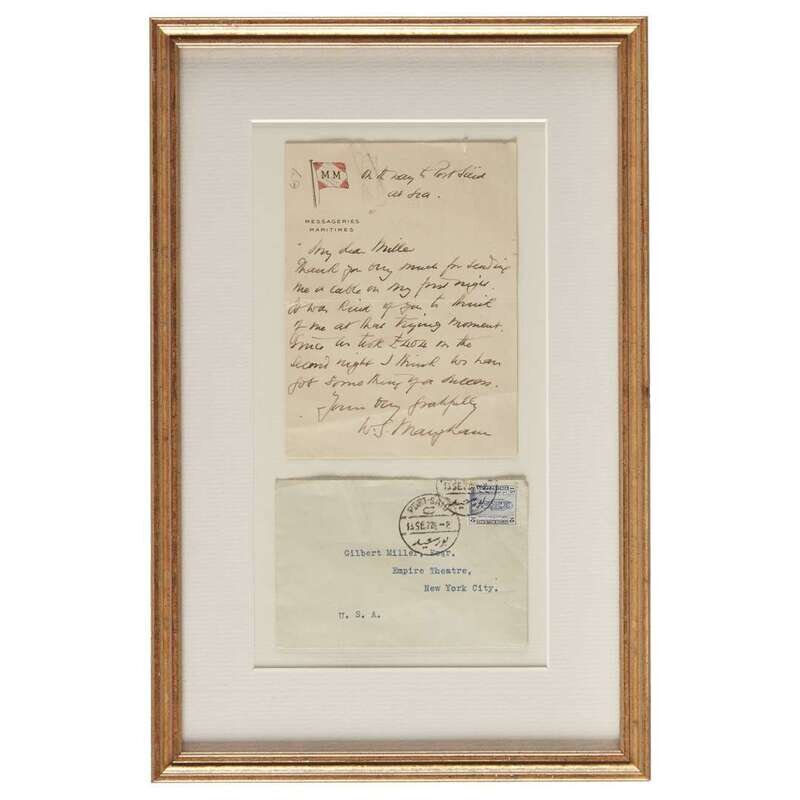 67
MM
On the way to Port Said
at sea.
MESSAGERIES
MARITIMES
My dear Miller
Thank you very much for sending
me a cable on my first night.
It was kind of you to think
of me at that trying moment.
Since we took £404 on the
second night I think we have
got something of a success.
Yours very gratefully
W. S. Maugham
PORT-SAID
بور سعيد
Gilbert Miller, Esqr.
Empire Theatre,
New York City.
U. S. A.